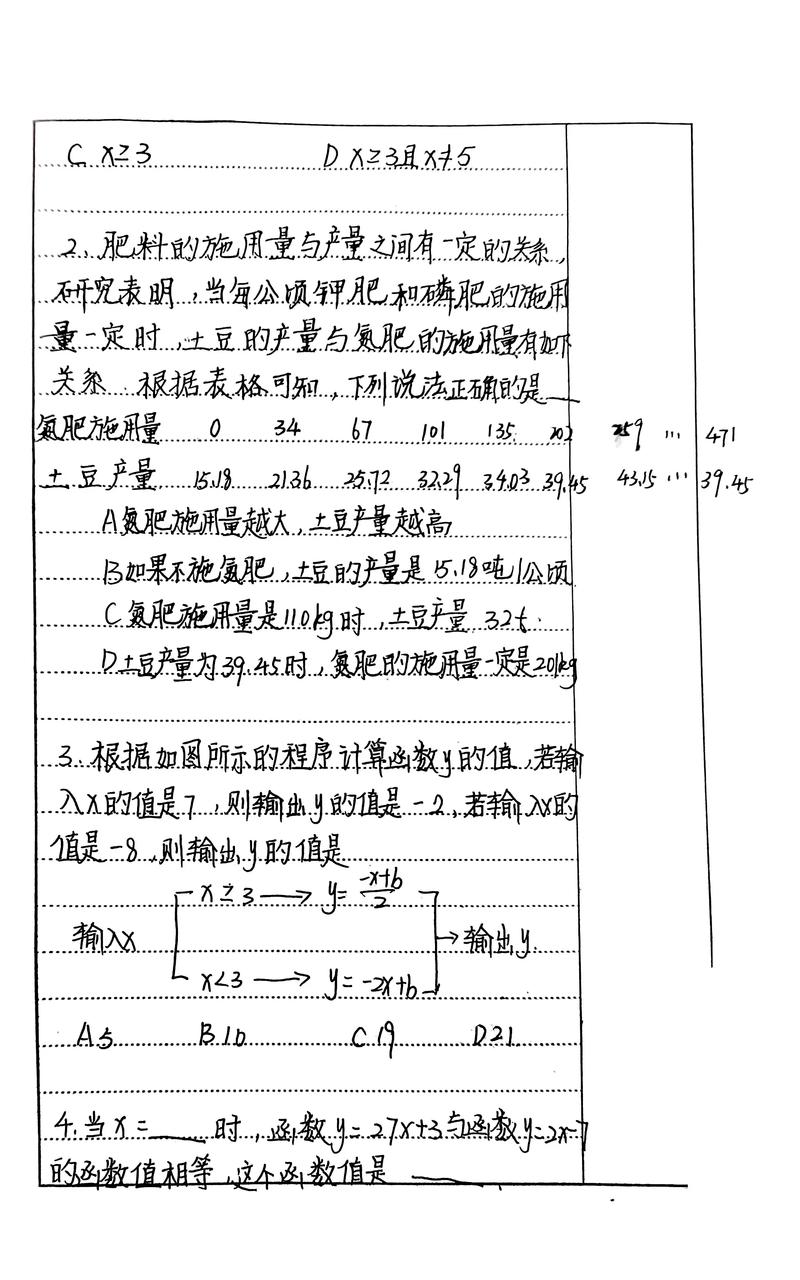 C x≥3 D x≥3且x≠5
2、肥料的施用量与产量之间有一定的关系,
研究表明,当每公顷钾肥和磷肥的施用
量一定时,土豆的产量与氮肥的施用量有如下
关系 根据表格可知,下列说法正确的是__
氮肥施用量 0 34 67 101 135 202 259 … 471
土豆产量 15.18 21.36 25.72 32.29 34.03 39.45 43.15 … 39.45
A氮肥施用量越大,土豆产量越高
B如果不施氮肥,土豆的产量是15.18吨/公顷
C氮肥施用量是110kg时,土豆产量32t.
D土豆产量为39.45时,氮肥的施用量一定是201kg
3、根据如图所示的程序计算函数y的值,若输
入x的值是7,则输出y的值是-2,若输入x的
值是-8,则输出y的值是
x≥3 → y=(-x+b)/2
输入x → 输出y.
x<3 → y=-2x+b
A5 B10 C19 D21
4.当x=___时,函数y=27x+3与函数y=2x-7
的函数值相等,这个函数值是____